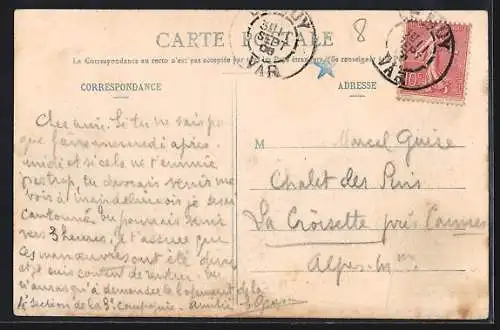 CARTE POSTALE
La Correspondance au recto n'est pas acceptée par
(Se renseigner
8
SEPT
08
VAR
CORRESPONDANCE
ADRESSE
Cher ami. Si tu ne sais pas
que faire mercredi après-
midi et si cela ne t'ennuie
pas trop, tu devrais venir me
voir à Mandelieu où je serai
cantonné. Tu pourrais venir
vers 3 heures. Je t'assure que
ces manœuvres ont été dures
et je suis content de rentrer. Tu
n'auras qu'à demander le logement de la
4e section de la 3e compagnie. Amitiés
M Marcel Guise
Chalet des Pins
La Croisette près Cannes
Alpes-Mmes